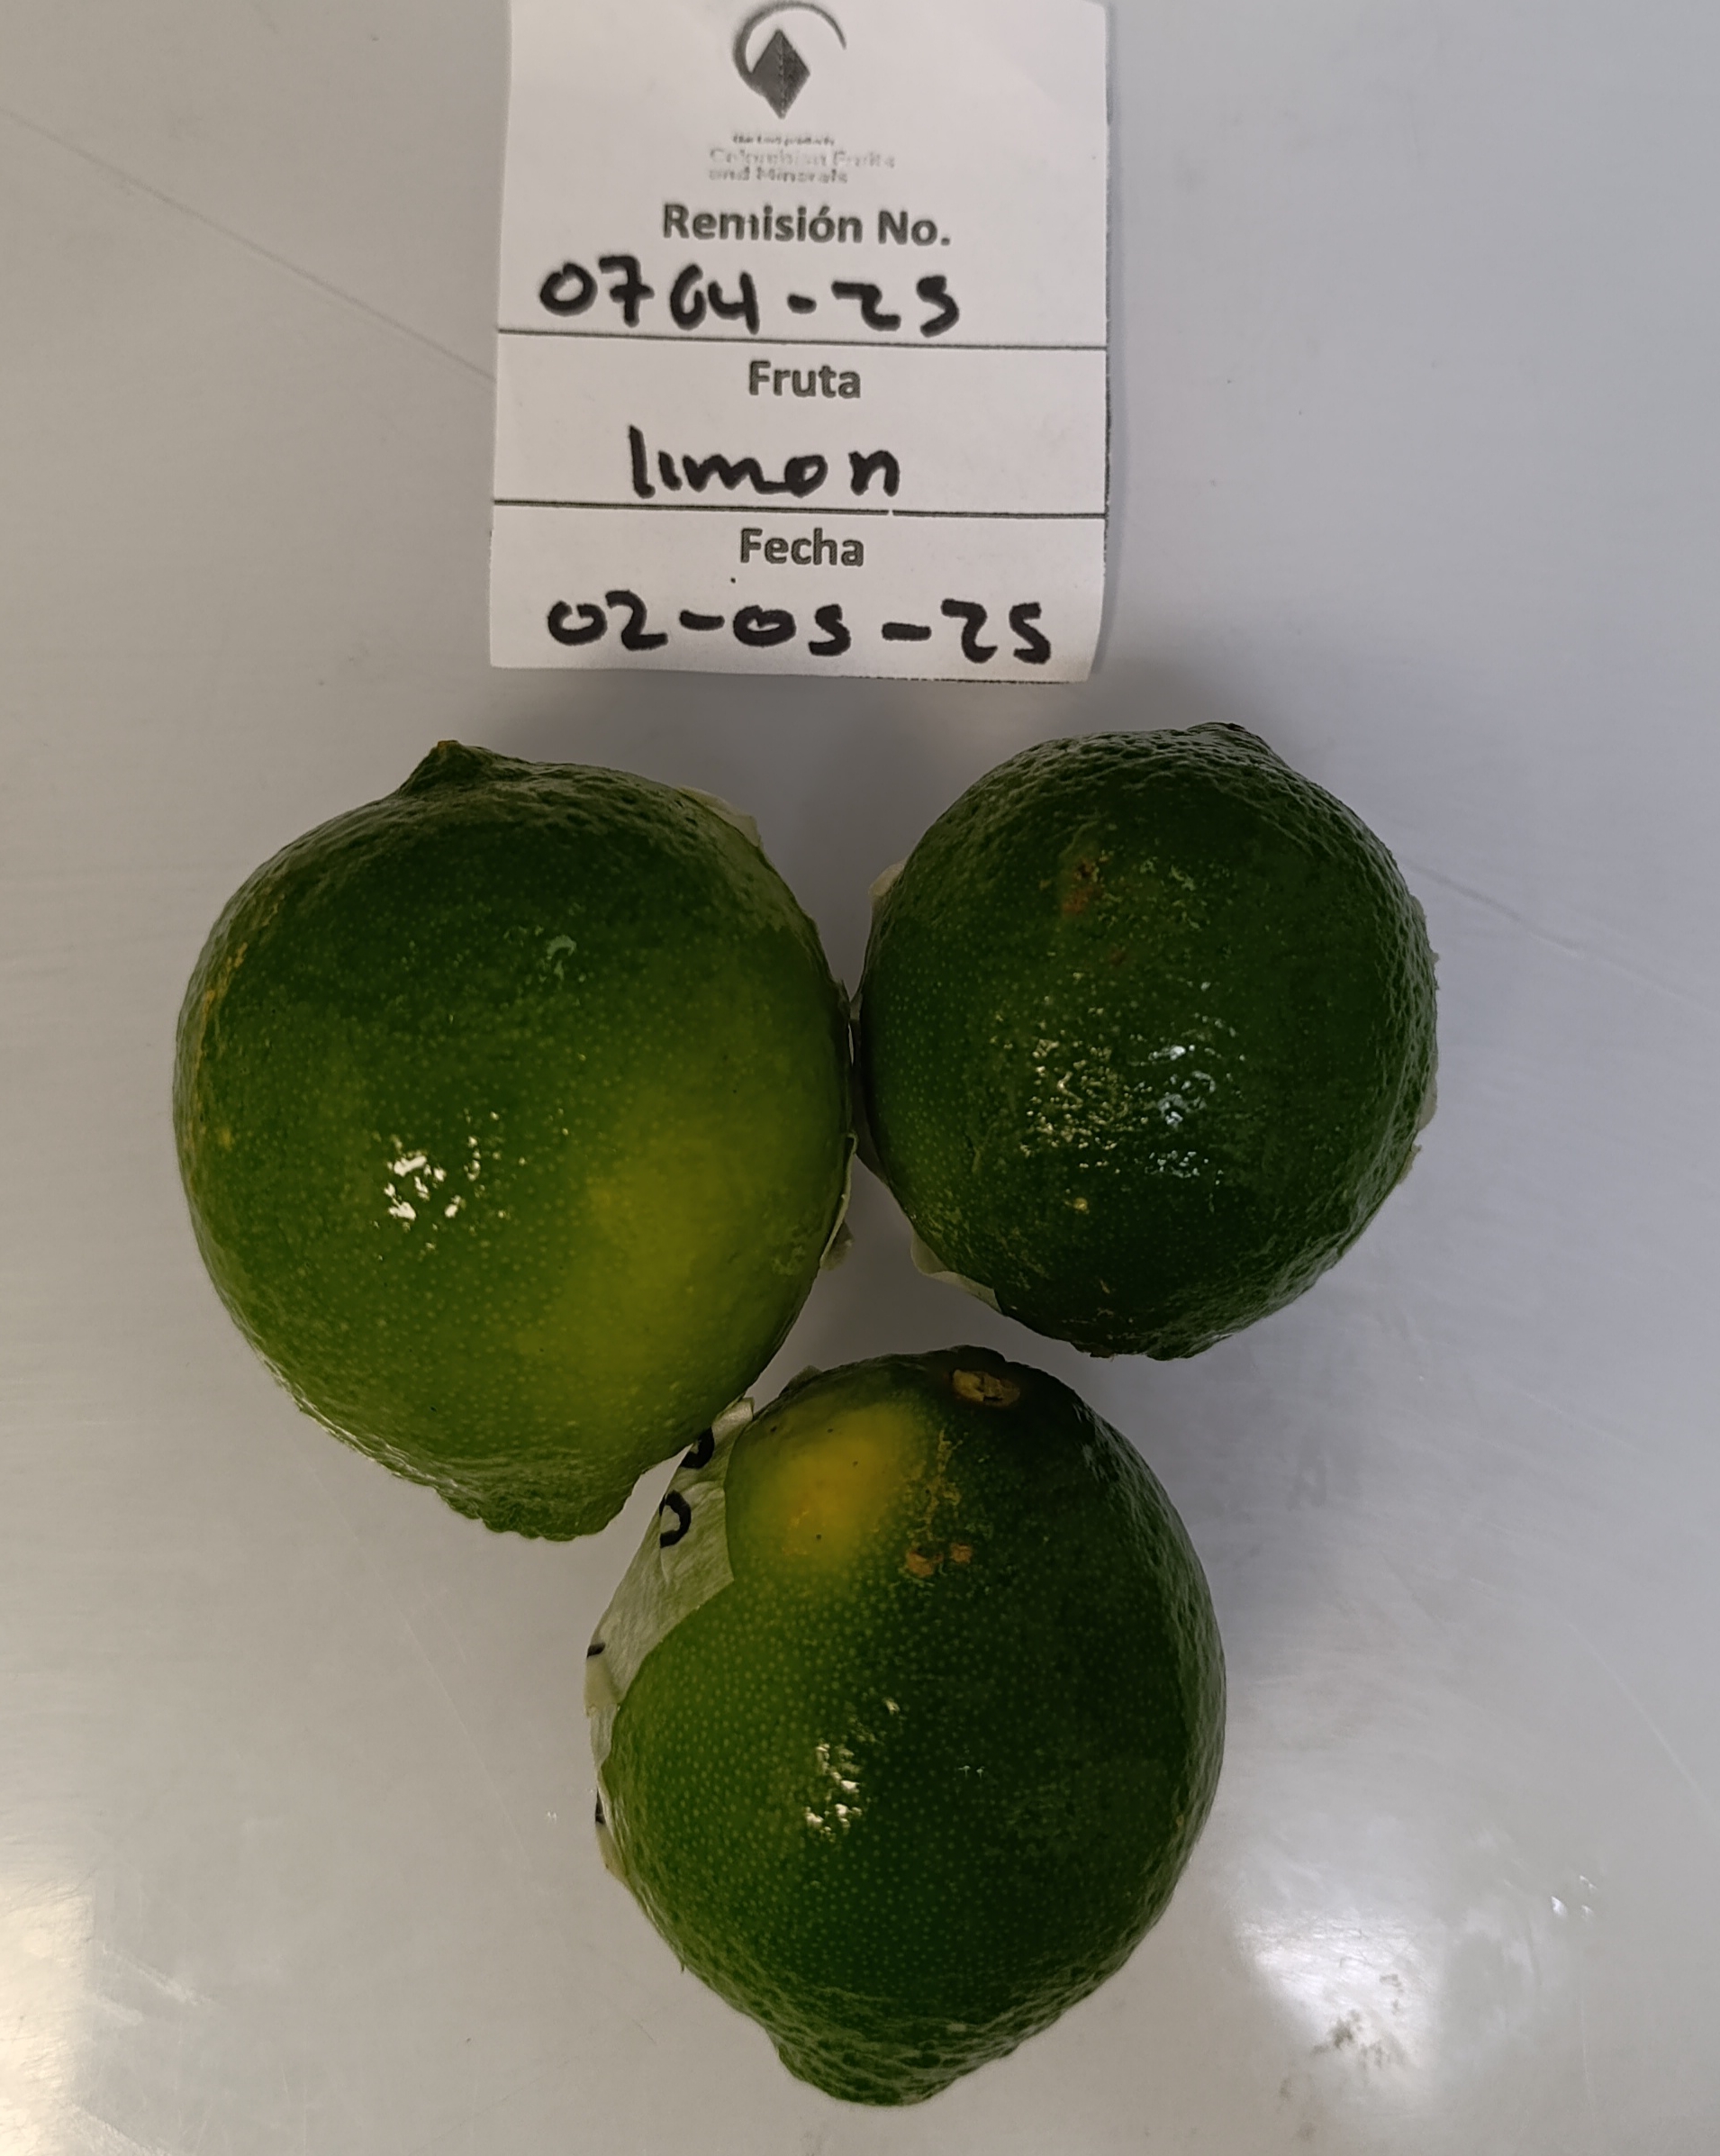 Colombian Fruits
and Minerals
Remisión No.
0764-25
Fruta
limon
Fecha
02-05-25